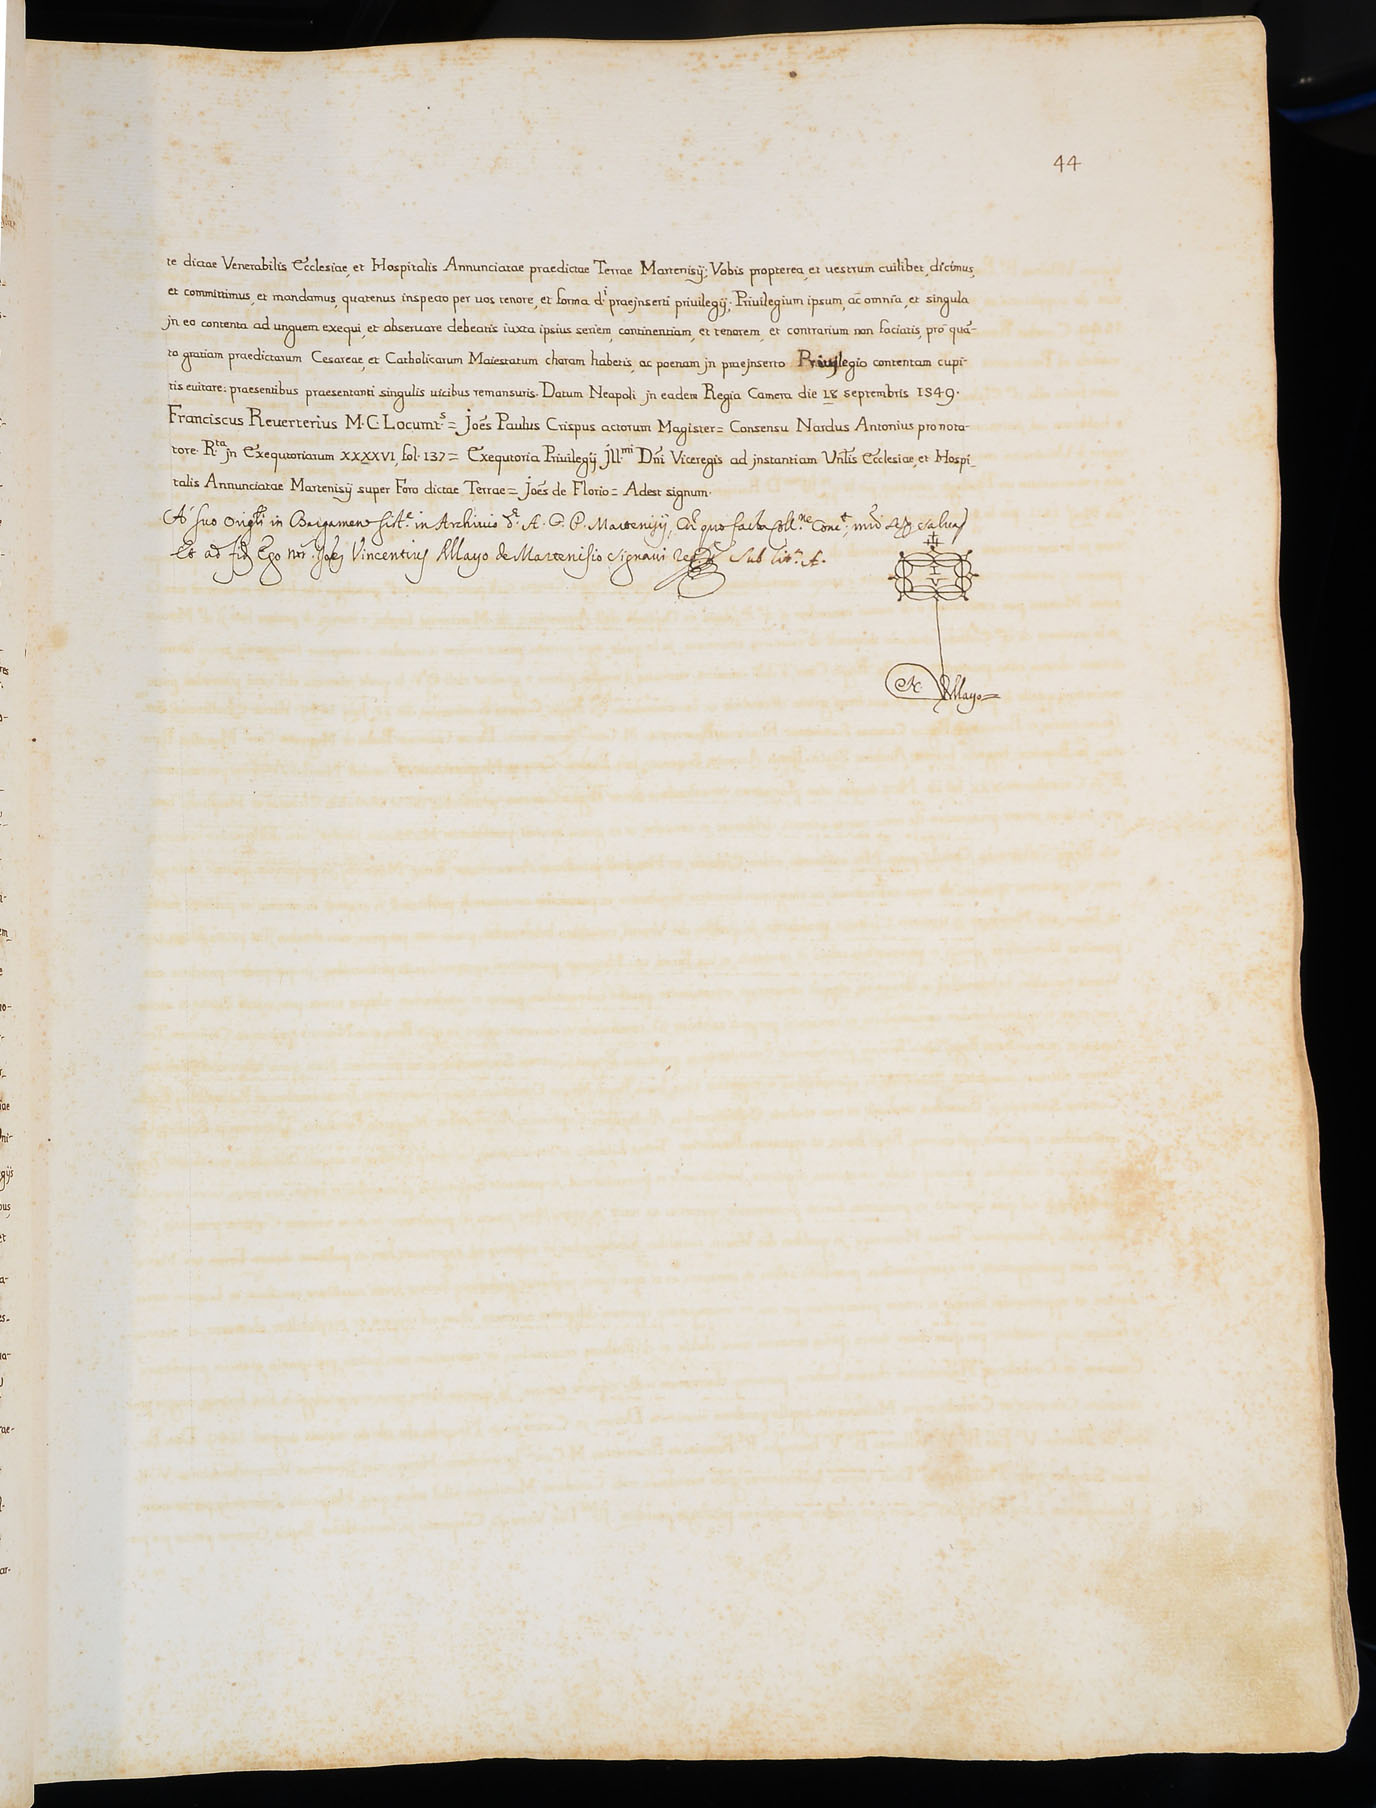 44
te dictae Venerabilis Ecclesiae, et Hospitalis Annunciatae praedictae Terrae Martenisij; Vobis propterea, et uestrum cuilibet, dicimus,
et committimus, et mandamus, quatenus inspecto per uos tenore, et forma d.i praejnserti priuilegij; Priuilegium ipsum, ac omnia, et singula
jn eo contenta ad unguem exequi, et obseruare debeatis iuxta ipsius seriem, continentiam, et tenorem, et contrarium non faciatis, pro quā-
to gratiam praedictarum Cesareae, et Catholicarum Maiestatum charam habetis, ac poenam jn praejnserto Priuilegio contentam cupi-
tis euitare: praesentibus praesentanti singulis uicibus remansuris. Datum Neapoli jn eadem Regia Camera die 18 septembris 1549.
Franciscus Reuerterius M.C. Locumt.s = Joēs Paulus Crispus actorum Magister = Consensu Nardus Antonius pro nota-
tore. R.ta jn Exequtoriarum XXXXVI, fol. 137 = Exequtoria Priuilegij Jll.mi Dn̄i Viceregis ad jnstantiam Un̄lis Ecclesiae, et Hospi-
talis Annunciatae Martenisij super Foro dictae Terrae = Joēs de Florio = Adest signum.
A' suo in in Archiuio A. G. P. Martenisij, quo facta salua
Et ad Ego Not. Vincentius Mayo de Martenisio signaui Sub A.
I
V
Mayo =